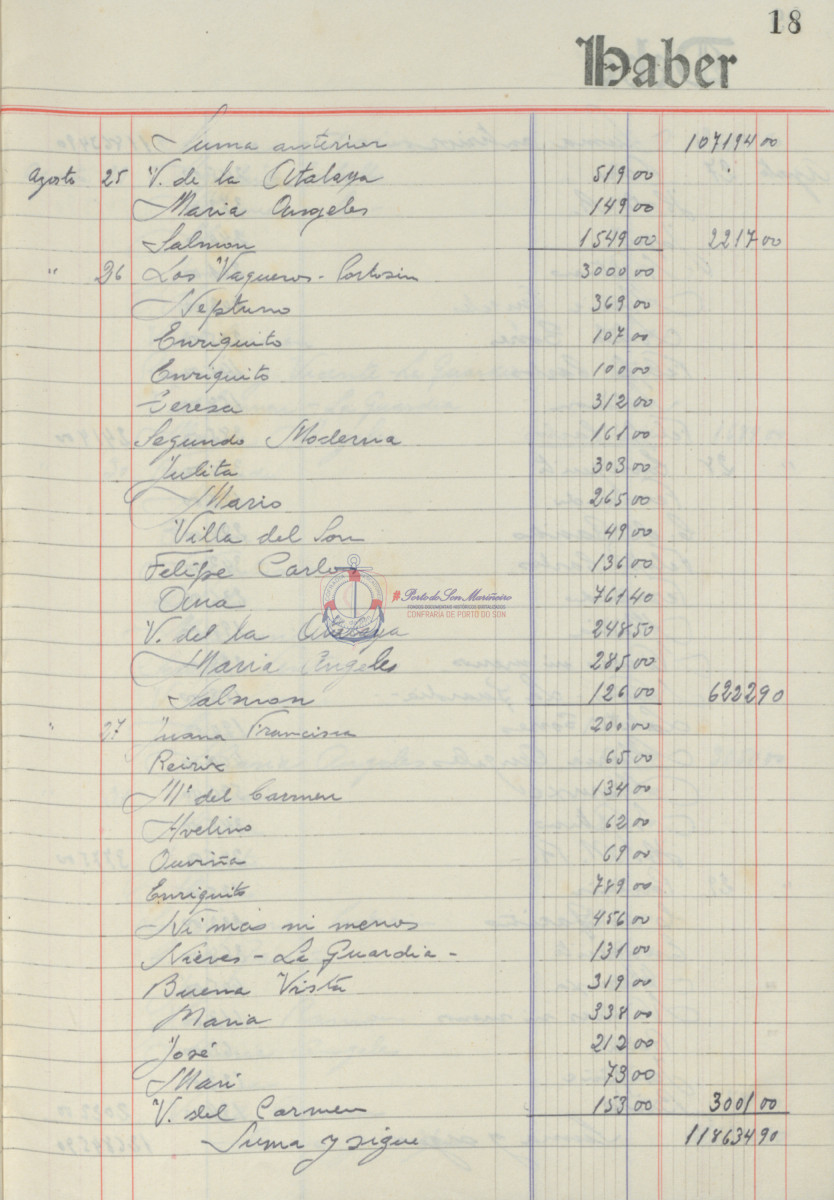 18
Haber
Suma anterior 107194 00
Agosto 25 V. de la Atalaya 519 00
Maria Angeles 149 00
Salmon 1549 00 2217 00
" 26 Los Vaqueros - Cortosin 3000 00
Neptuno 369 00
Enriquito 107 00
Enriquito 100 00
Teresa 312 00
Segundo Moderna 161 00
Julita 303 00
Mario 265 00
Villa del Son 49 00
Felipe Carlos 136 00
Oma 761 40
V. del la Atalaya 248 50
Maria Angeles 285 00
Salmon 126 00 6222 90
" 27 Juana Francisca 200 00
Reirix 65 00
Mª del Carmen 134 00
Avelino 62 00
Ouviña 69 00
Enriquito 789 00
Ni mas ni menos 456 00
Nieves - La Guardia - 131 00
Buena Vista 319 00
Maria 338 00
José 212 00
Mari 73 00
V. del Carmen 153 00 3001 00
Suma y sigue 118634 90
#PortodoSonMariñeiro
FONDOS DOCUMENTAIS HISTÓRICOS DIXITALIZADOS
CONFRARÍA DE PORTO DO SON